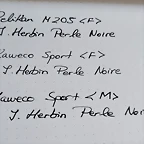 Pelikan M205 <F>
J. Herbin Perle Noire
Kaweco Sport <F>
J. Herbin Perle Noire
Kaweco Sport <M>
J. Herbin Perle Noi